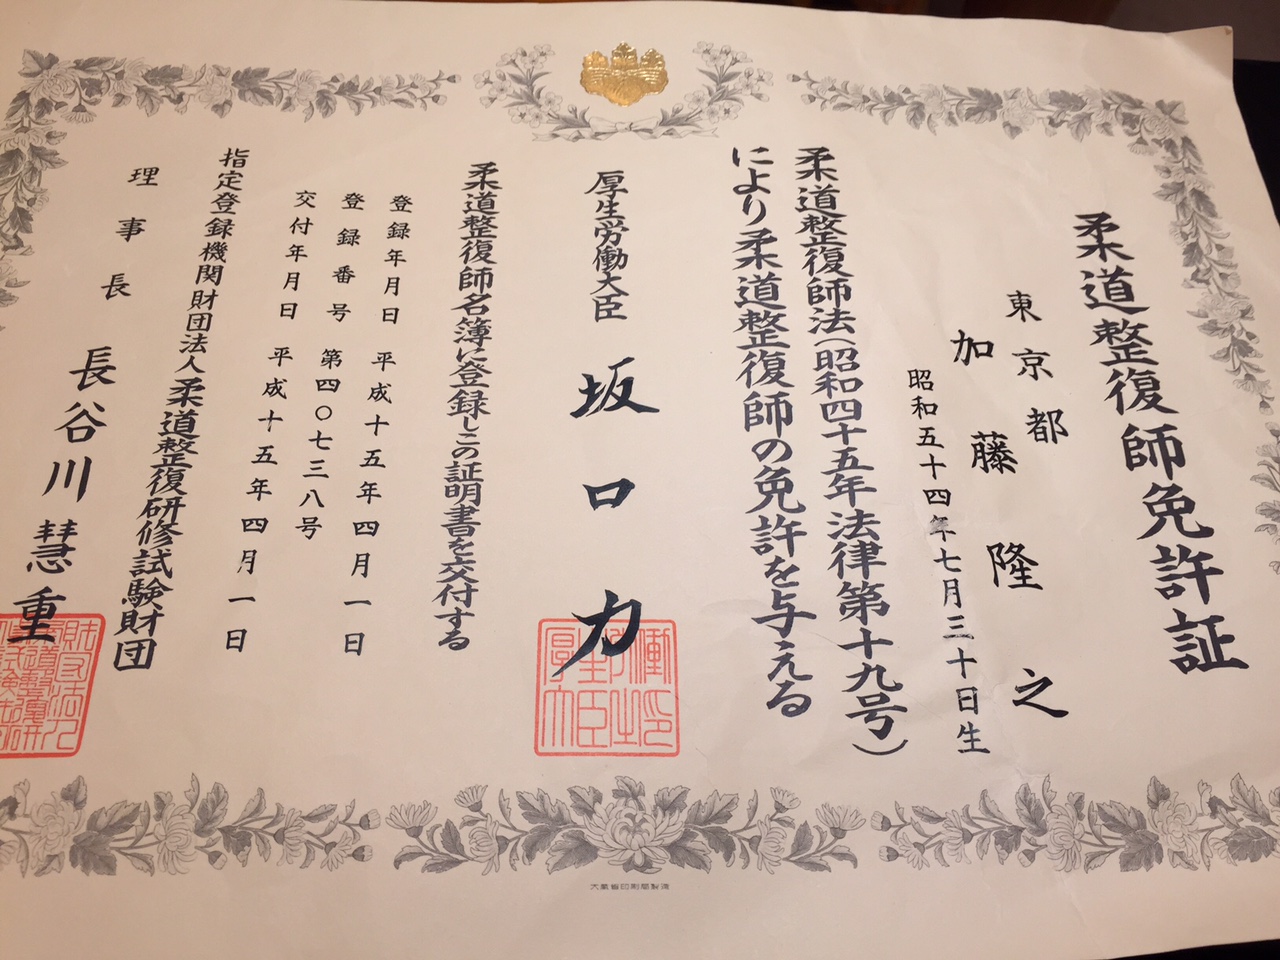 柔道整復師免許証
東京都
加藤隆之
昭和五十四年七月三十日生
柔道整復師法(昭和四十五年法律第十九号)
により柔道整復師の免許を与える
厚生労働大臣 坂口力
柔道整復師名簿に登録しこの証明書を交付する
登録年月日 平成十五年四月一日
登録番号 第四〇七三八号
交付年月日 平成十五年四月一日
指定登録機関財団法人柔道整復研修試験財団
理事長 長谷川慧重
大蔵省印刷局製造